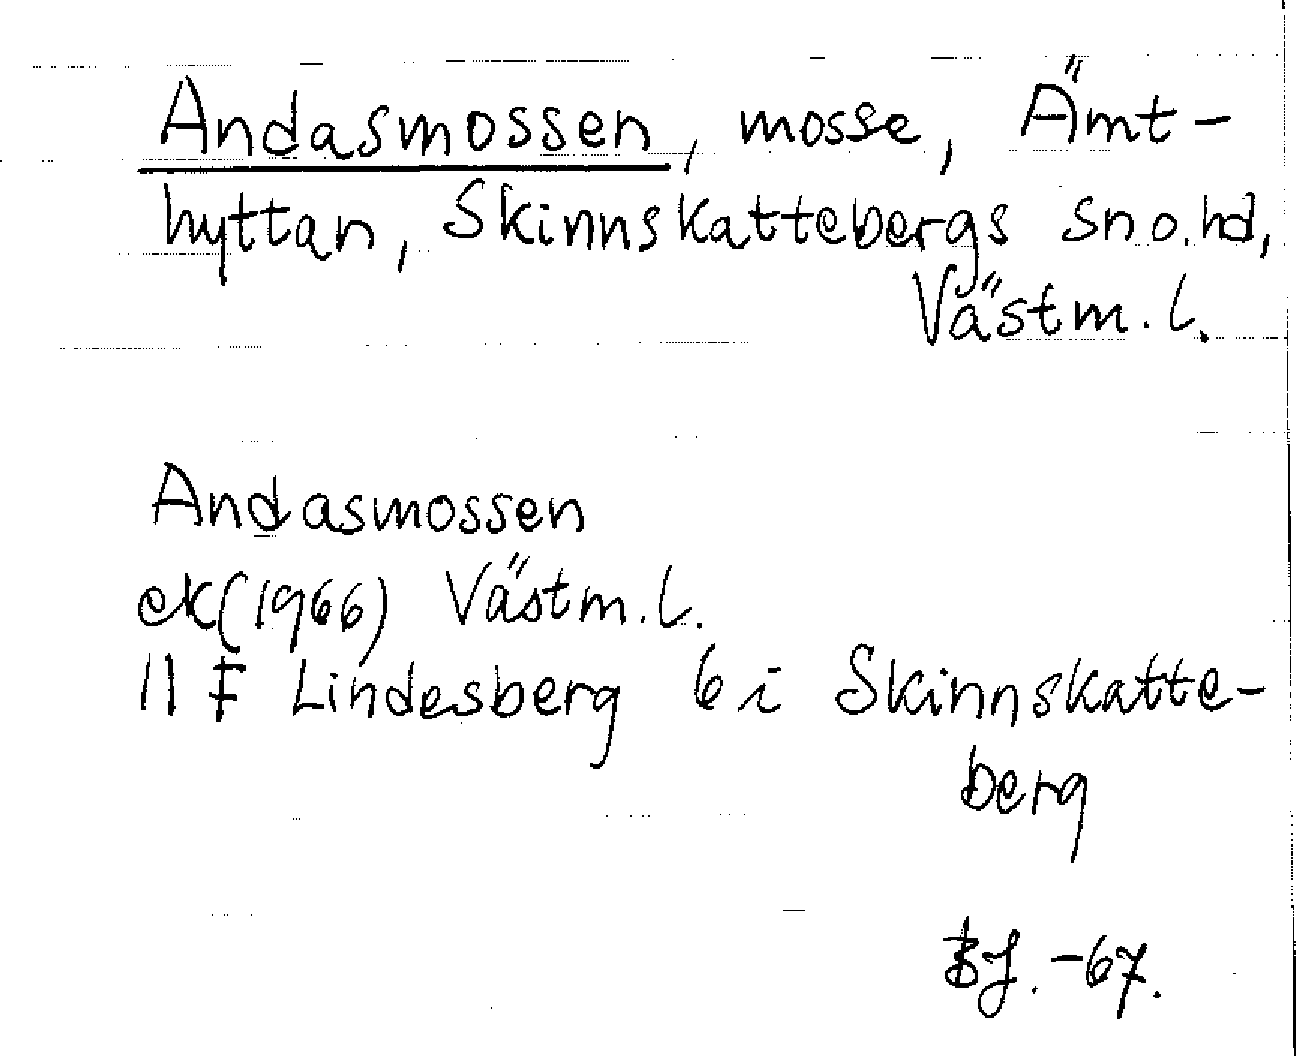 Andasmossen, mosse, Ämt-
hyttan, Skinnskattebergs sn o. hd,
Västm. l.
Andasmossen
ek (1966) Västm. l.
11 F Lindesberg 6 i Skinnskatte-
berg
BJ. -67.